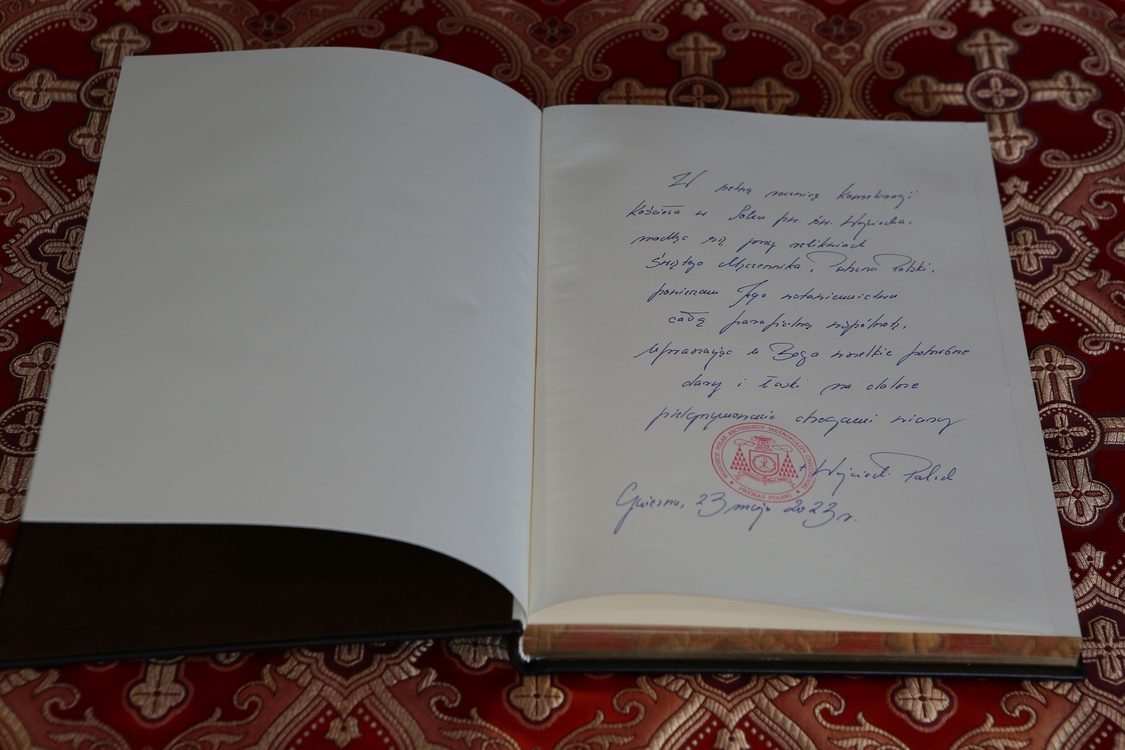 W setną rocznicę konsekracji
Kościoła w Solcu pw. św. Wojciecha.
modląc się przy relikwiach
Świętego Męczennika, Patrona Polski,
powierzam Jego wstawiennictwu
całą parafialną wspólnotę,
upraszając u Boga wszelkie potrzebne
dary i łaski na dalsze
pielgrzymowanie drogami wiary
+ Wojciech Polak
PRYMAS POLSKI
Gniezno, 23 maja 2023 r.